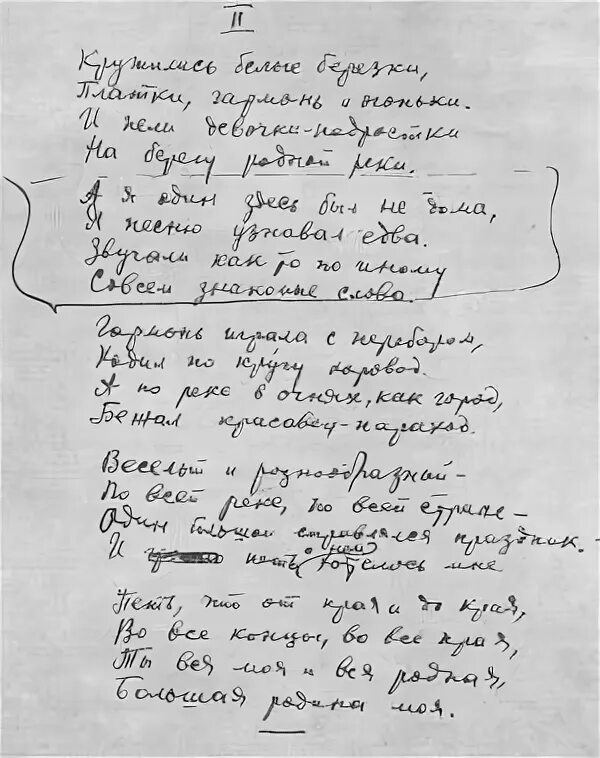 II
Кружились белые березки,
Платки, гармонь и огоньки.
И пели девочки-подростки
На берегу родной реки.
А я один здесь был не дома,
Я песню узнавал едва.
Звучали как то по иному
Совсем знакомые слова.
Гармонь играла с перебором,
Ходил по кругу хоровод.
А по реке в огнях, как город,
Бежал красавец-пароход.
Веселый и разнообразный –
По всей реке, по всей стране –
Один большой справлялся праздник. –
И петь о нем хотелось мне
Петь, что от края и до края,
Во все концы, во все края,
Ты вся моя и вся родная,
Большая родина моя.